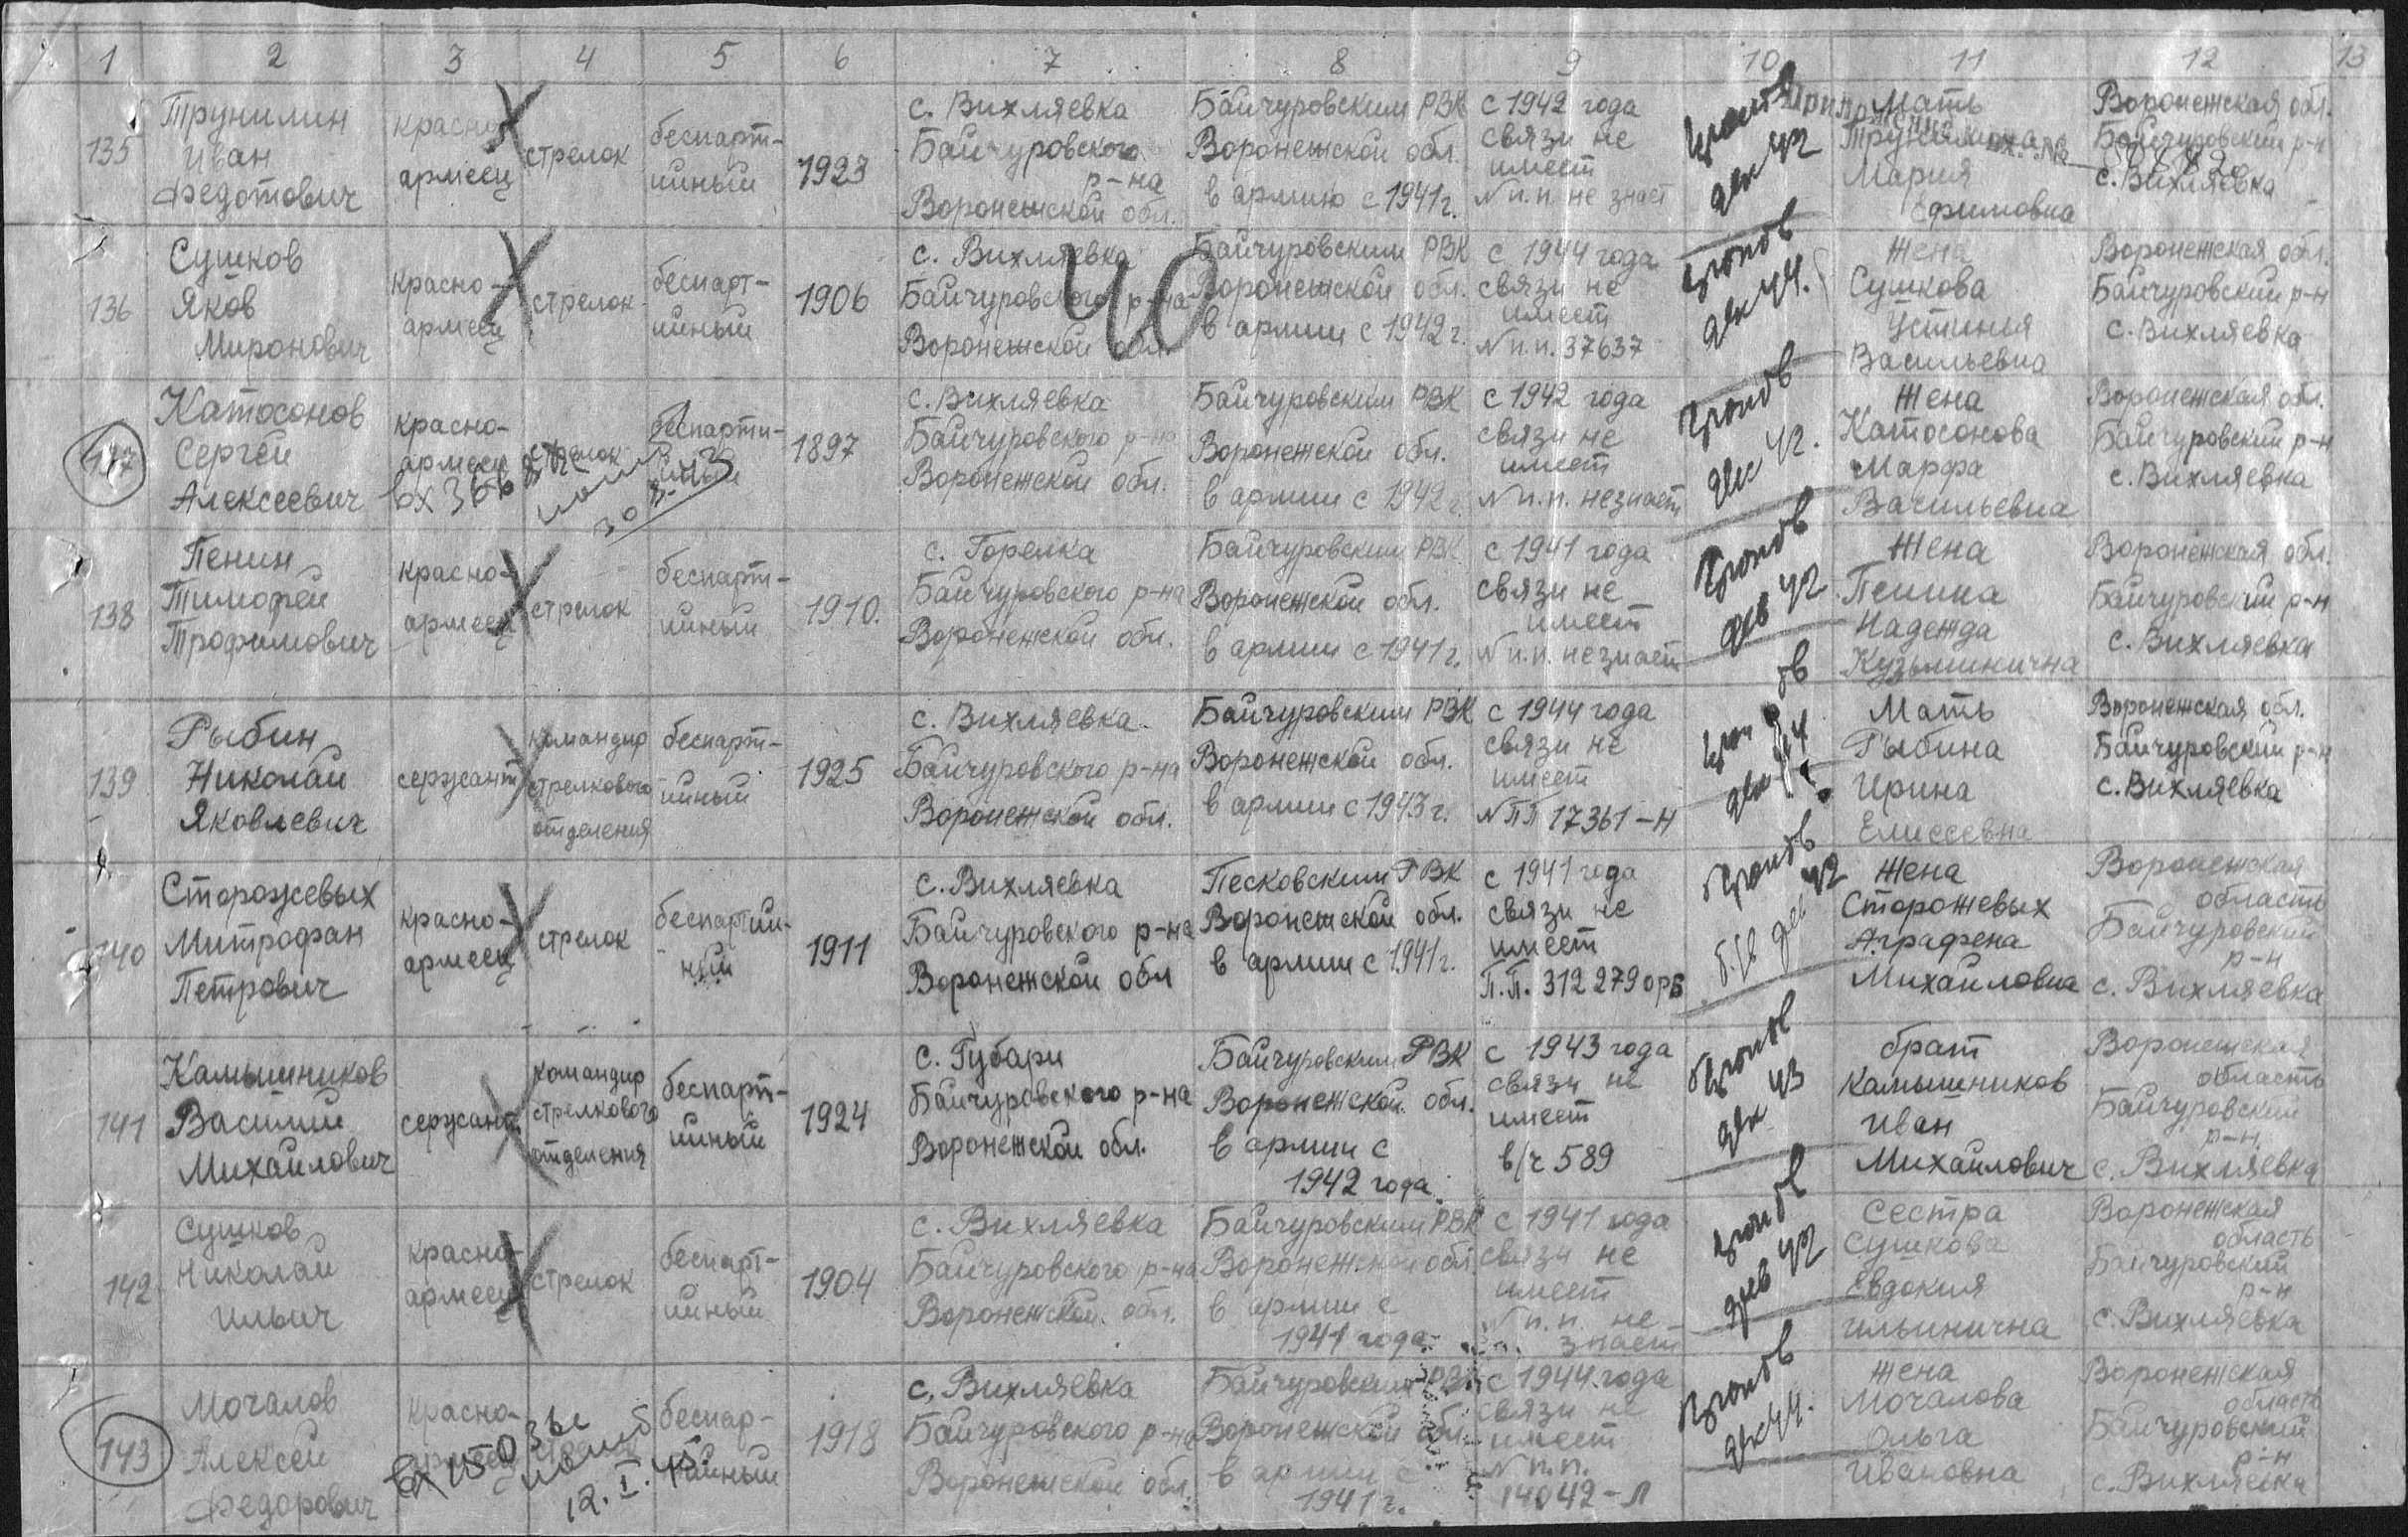 1 2 3 4 5 6 7 8 9 10 11 12 13
135
Трунилин
Иван
Федотович
красно-
армеец
стрелок
беспарт-
ийный
1923
с. Вихляевка
Байчуровского
р-на
Воронежской обл.
Байчуровским РВК
Воронежской обл.
в армию с 1941 г.
с 1942 года
связи не
имеет
N п.п. не знает
дек 42
Мать
Трунилина
Мария
Ефимовна
Воронежская обл.
Байчуровский р-н
с. Вихляевка
136
Сушков
Яков
Миронович
красно-
армеец
стрелок
беспарт-
ийный
1906
с. Вихляевка
Байчуровского р-на
Воронежской обл.
40
Байчуровским РВК
Воронежской обл.
в армии с 1942 г.
с 1944 года
связи не
имеет
N п.п. 37637
пропов
дек 44.
Жена
Сушкова
Устинья
Васильевна
Воронежская обл.
Байчуровский р-н
с. Вихляевка
137
Катасонов
Сергей
Алексеевич
красно-
армеец
вх 366
стрелок
беспарти-
йный
1897
с. Вихляевка
Байчуровского р-на
Воронежской обл.
Байчуровским РВК
Воронежской обл.
в армии с 1942 г.
с 1942 года
связи не
имеет
N п.п. незнает
пропов
дек 42.
Жена
Катасонова
Марфа
Васильевна
Воронежская обл.
Байчуровский р-н
с. Вихляевка
138
Пенин
Тимофей
Трофимович
красно-
армеец
стрелок
беспарт-
ийный
1910.
с. Горелка
Байчуровского р-на
Воронежской обл.
Байчуровским РВК
Воронежской обл.
в армии с 1941 г.
с 1941 года
связи не
имеет
N п.п. незнает
пропов
фев 42
Жена
Пенина
Надежда
Кузьминична
Воронежская обл.
Байчуровский р-н
с. Вихляевка
139
Рыбин
Николай
Яковлевич
сержант
командир
стрелкового
отделения
беспарт-
ийный
1925
с. Вихляевка
Байчуровского р-на
Воронежской обл.
Байчуровским РВК
Воронежской обл.
в армии с 1943 г.
с 1944 года
связи не
имеет
N ПП 17361-Н
Мать
Рыбина
Ирина
Елисеевна
Воронежская обл.
Байчуровский р-н
с. Вихляевка
140
Сторожевых
Митрофан
Петрович
красно-
армеец
стрелок
беспартий-
ный
1911
с. Вихляевка
Байчуровского р-на
Воронежской обл
Песковским РВК
Воронежской обл.
в армии с 1941 г.
с 1941 года
связи не
имеет
П.П. 312 279 орб
пропов
42
Жена
Сторожевых
Аграфена
Михайловна
Воронежская
область
Байчуровский
р-н
с. Вихляевка
141
Камышников
Василий
Михайлович
сержант
командир
стрелкового
отделения
беспарт-
ийный
1924
с. Губари
Байчуровского р-на
Воронежской обл.
Байчуровским РВК
Воронежской обл.
в армии с
1942 года
с 1943 года
связи не
имеет
в/ч 589
пропов
дек 43
брат
Камышников
Иван
Михайлович
Воронежская
область
Байчуровский
р-н
с. Вихляевка
142
Сушков
Николай
Ильич
красно-
армеец
стрелок
беспарт-
ийный
1904
с. Вихляевка
Байчуровского р-на
Воронежской обл.
Байчуровским РВК
Воронежской обл.
в армии с
1941 года
с 1941 года
связи не
имеет
N п.п. не
знает
пропов
фев 42
Сестра
Сушкова
Евдокия
Ильинична
Воронежская
область
Байчуровский
р-н
с. Вихляевка
143
Мочалов
Алексей
Федорович
красно-
армеец
беспар-
тийный
12.I.45
1918
с. Вихляевка
Байчуровского р-на
Воронежской обл.
Байчуровским РВК
Воронежской обл.
в армии с
1941 г.
с 1944 года
связи не
имеет
N п.п.
14042-Л
пропов
дек 44.
Жена
Мочалова
Ольга
Ивановна
Воронежская
область
Байчуровский
р-н
с. Вихляевка